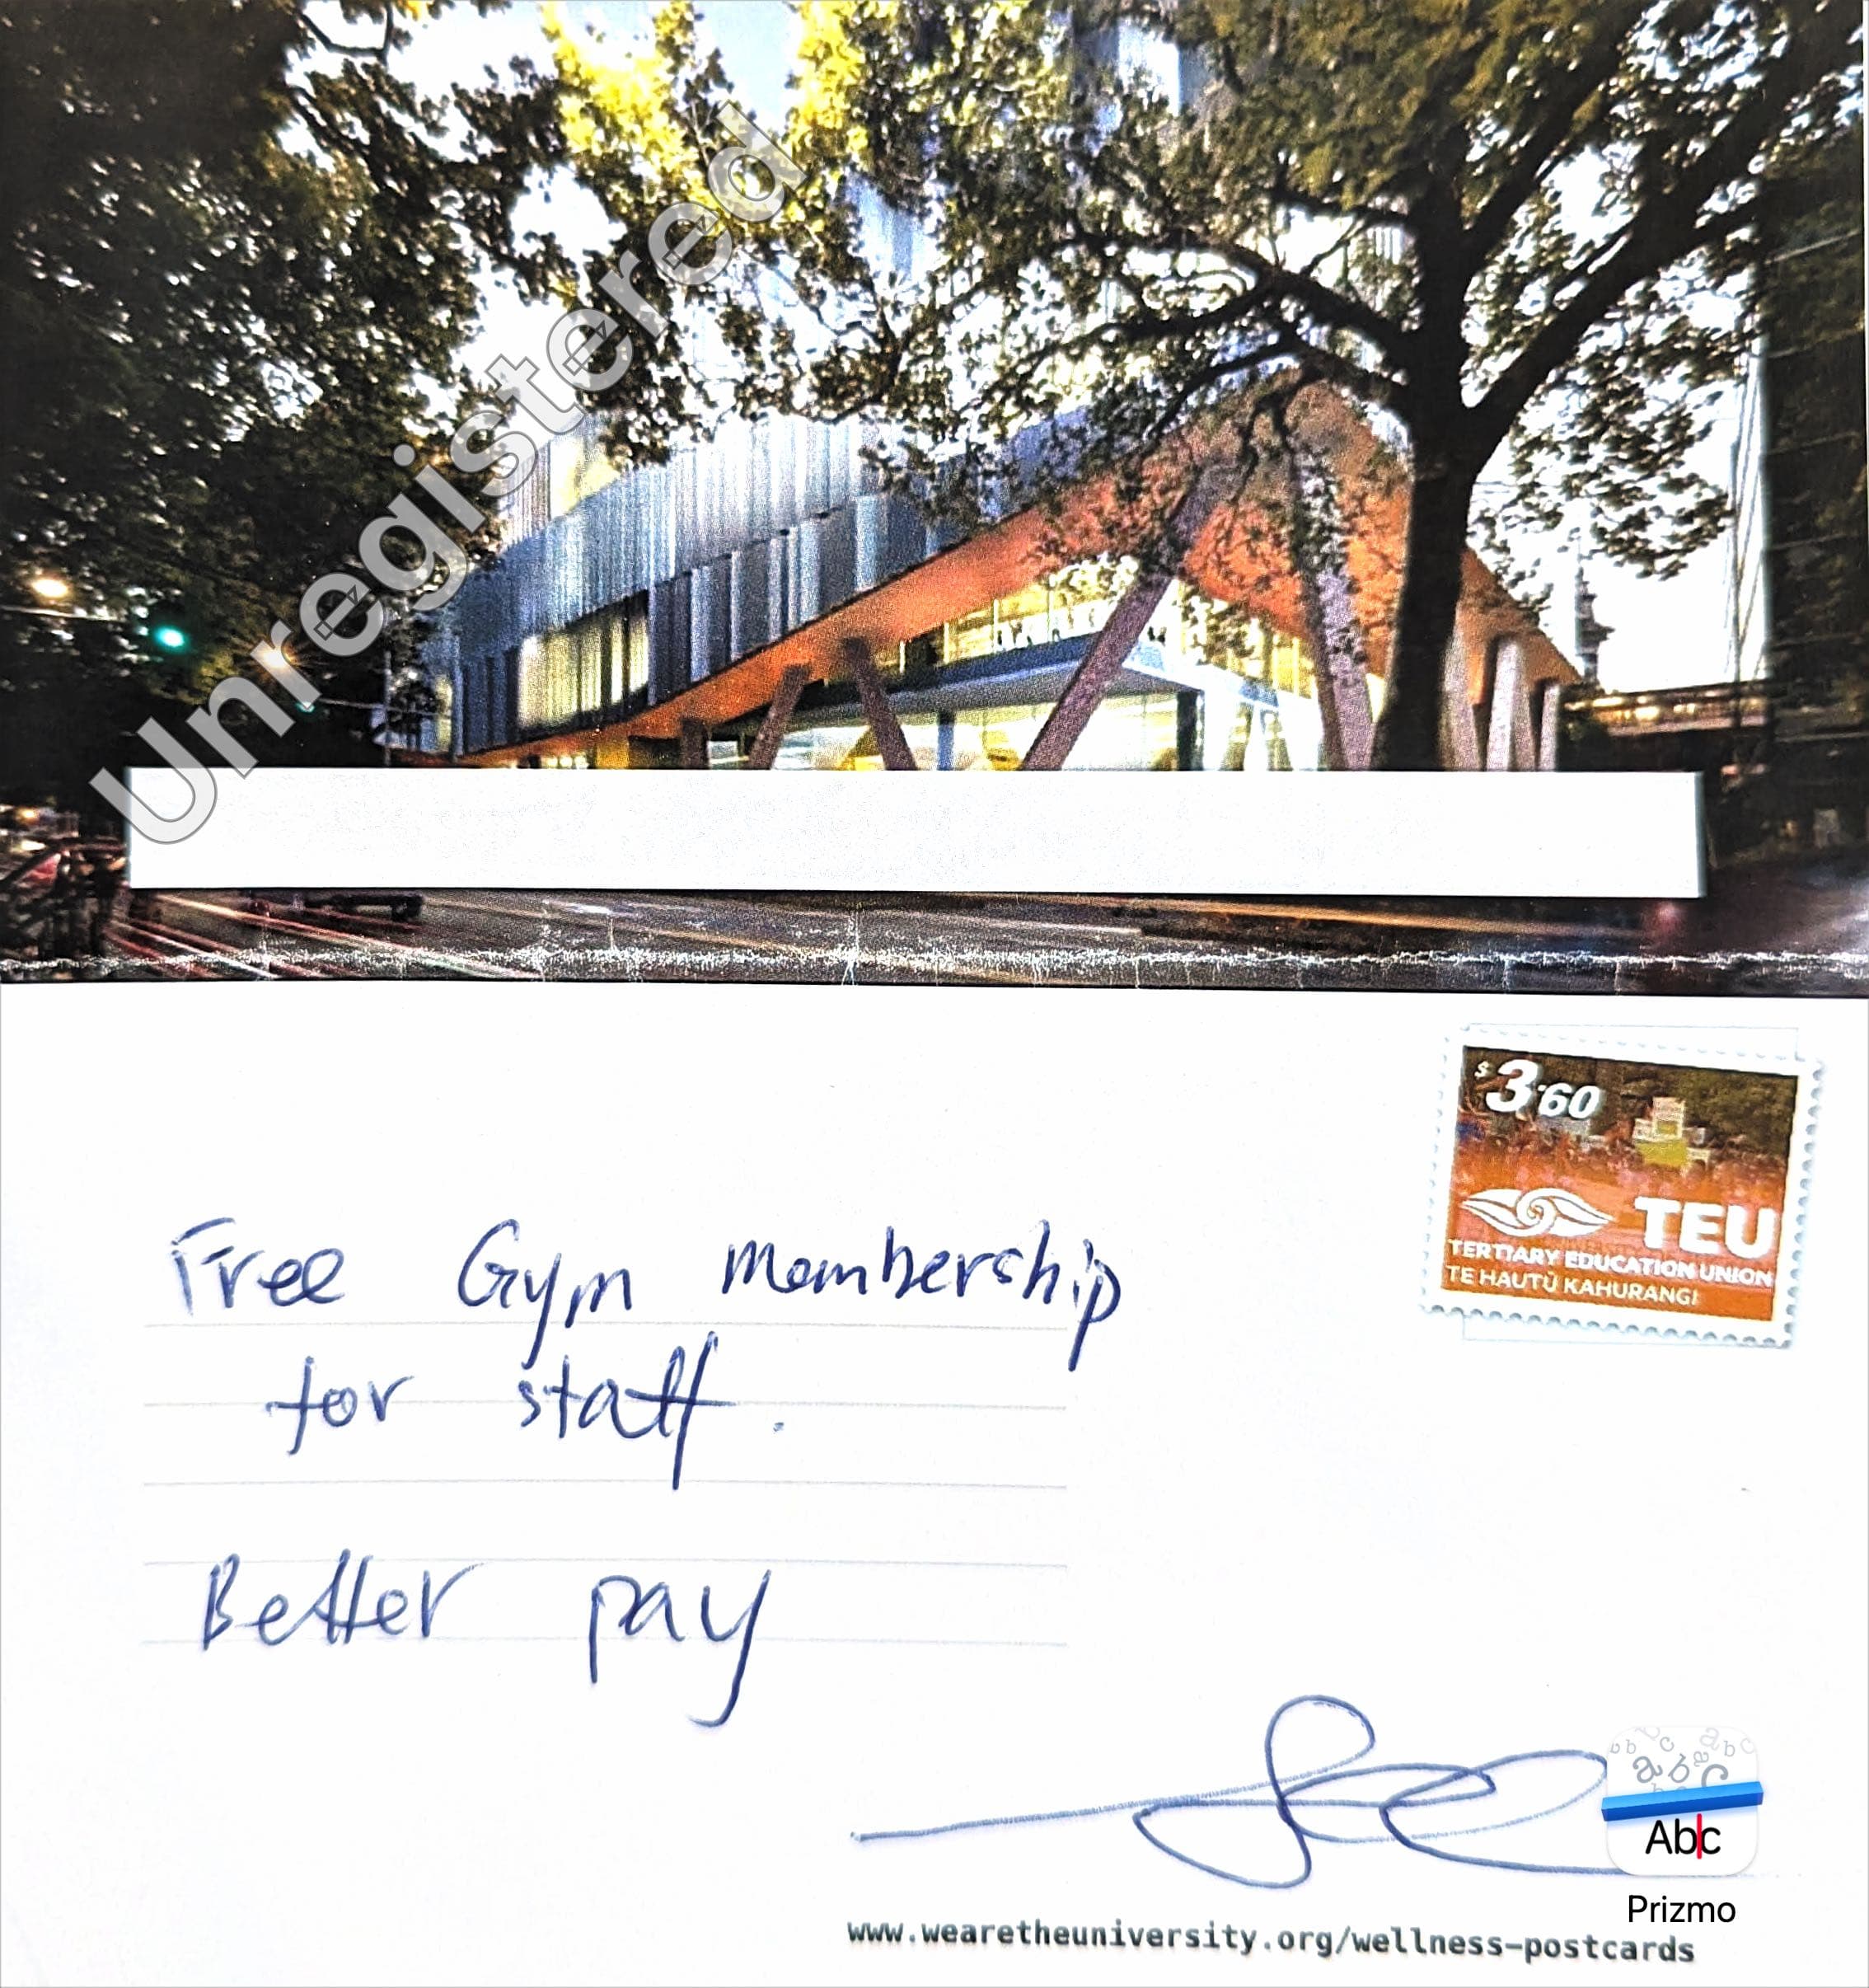 Unregistered
$3.60
TEU
TERTIARY EDUCATION UNION
TE HAUTŪ KAHURANGI
Free Gym membership
for staff.
Better pay
Abc
Prizmo
www.wearetheuniversity.org/wellness-postcards